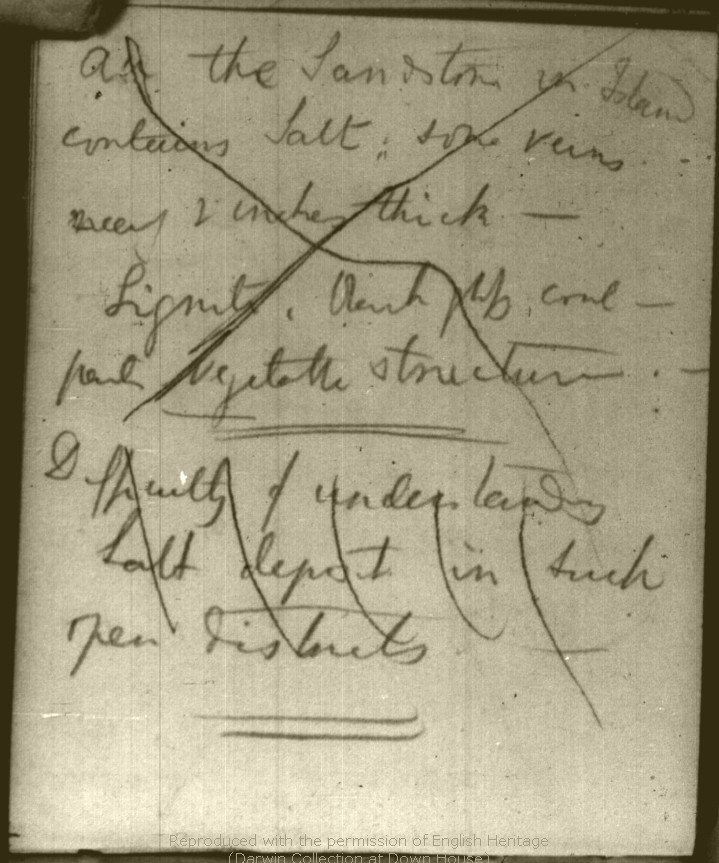 All the Sandstone in Island
contains Salt, some veins
2 inches thick —
Lignite, coal —
vegetable structure . —
Difficulty of understanding
Salt deposit in such
open districts
Reproduced with the permission of English Heritage
(Darwin Collection at Down House)